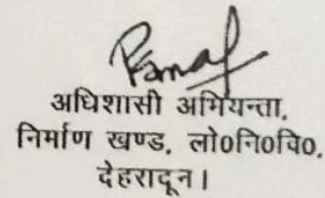 अधिशासी अभियन्ता,
निर्माण खण्ड, लो0नि0वि0,
देहरादून।